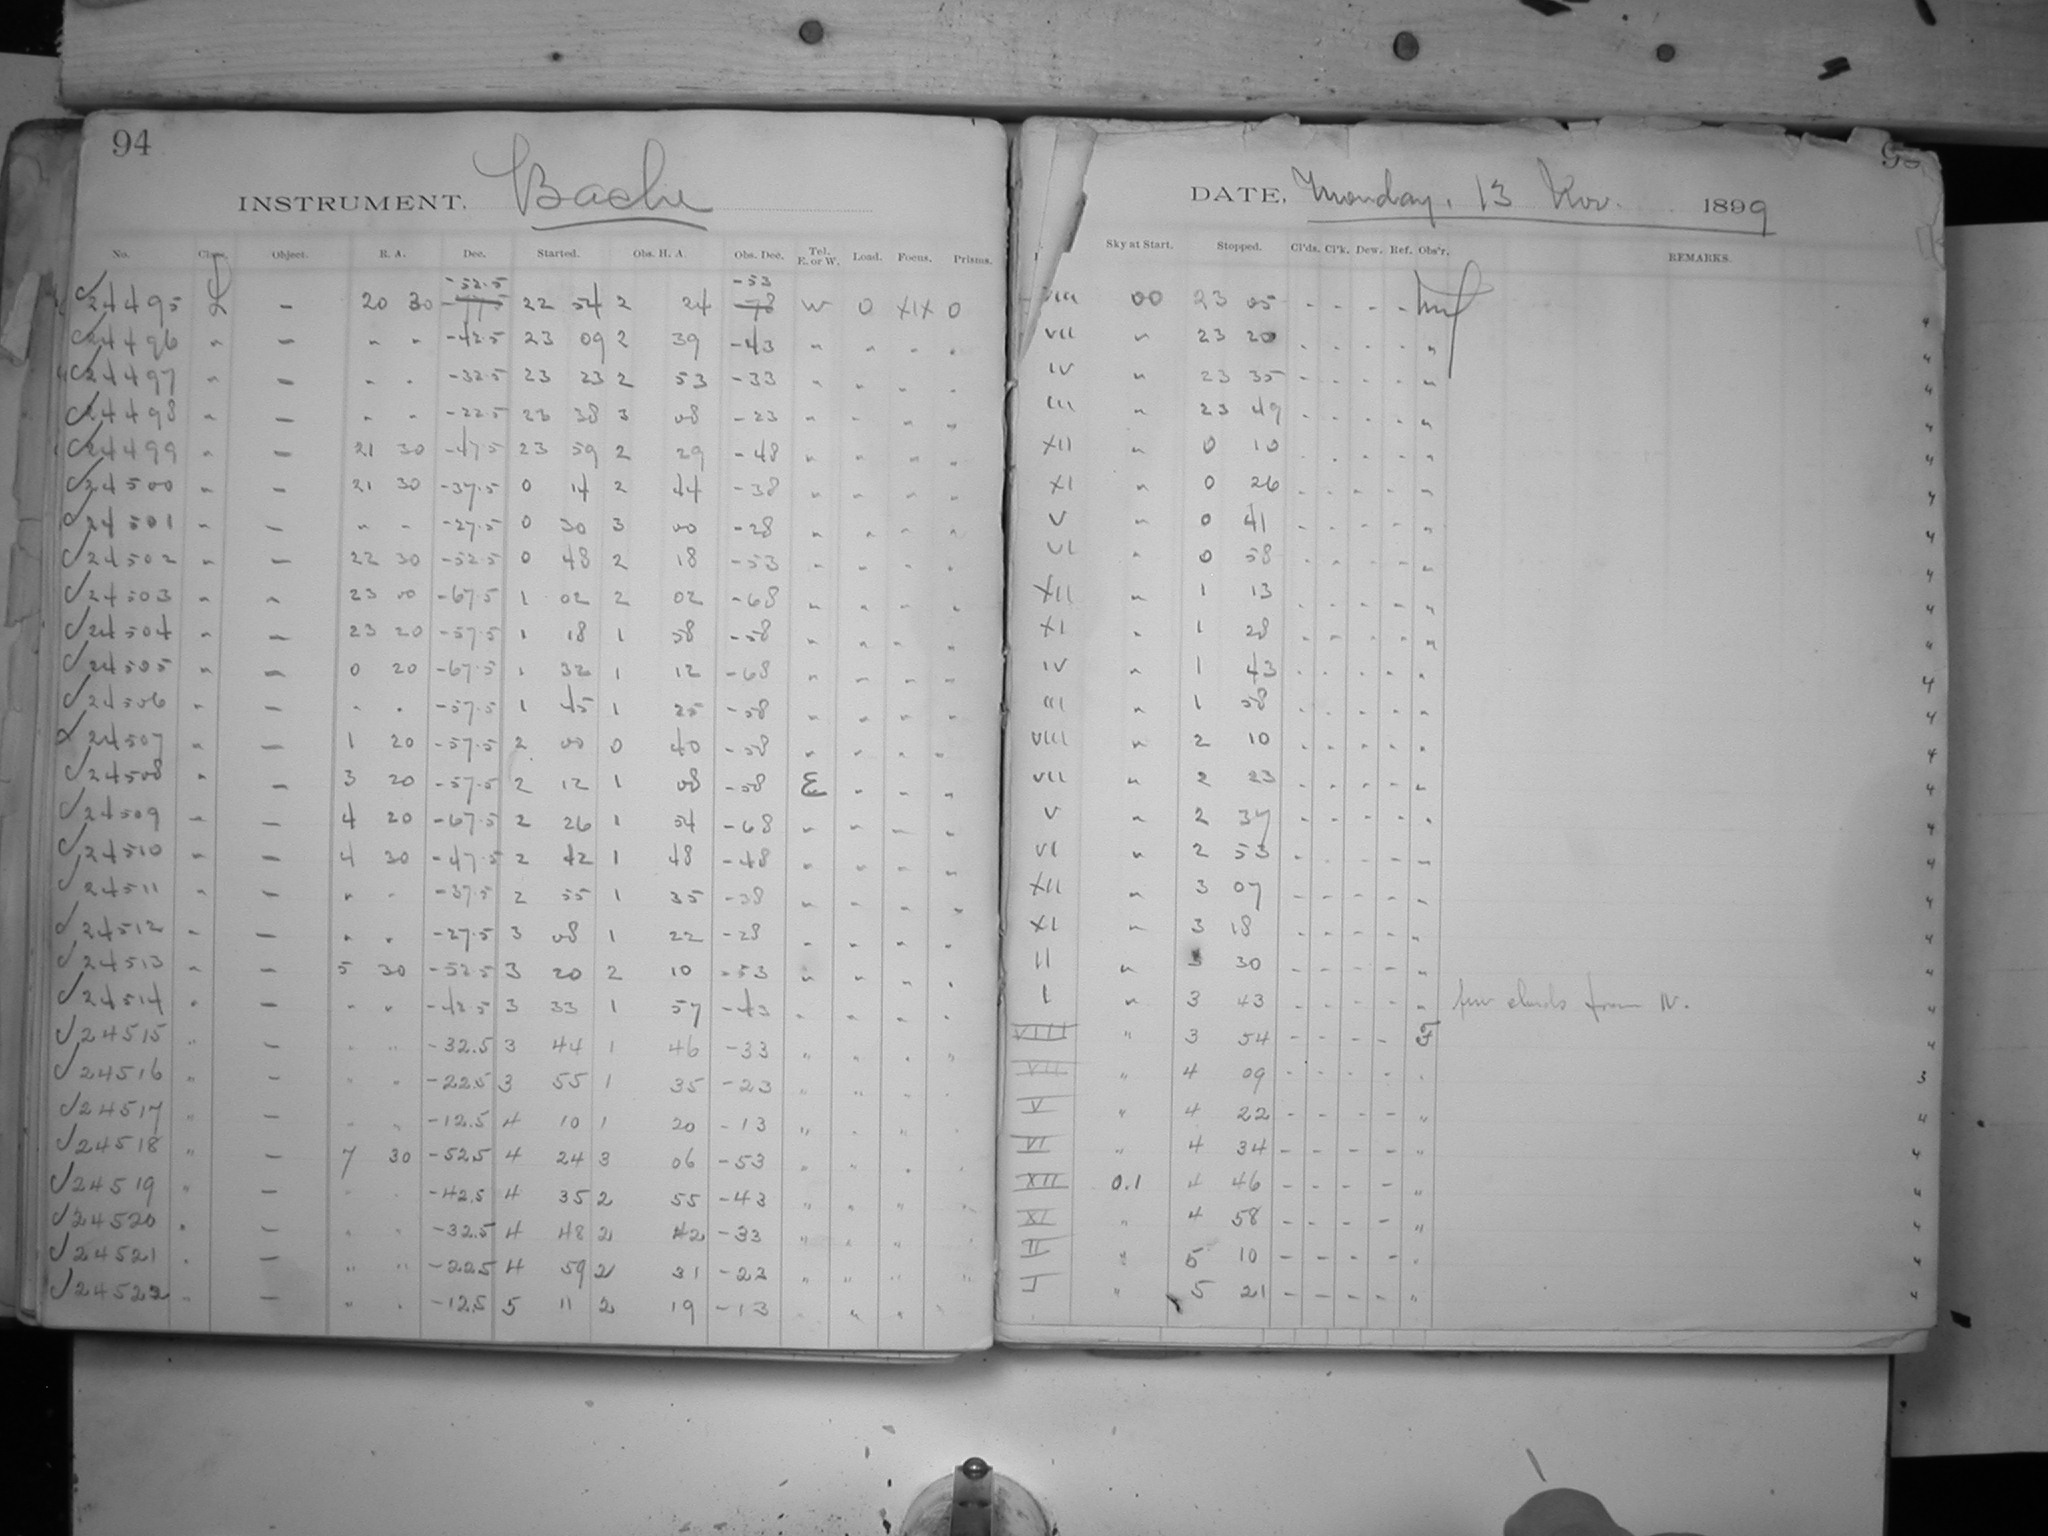 94
INSTRUMENT. Bache
No. Class. Object. R. A. Dec. Started. Obs. H. A. Obs. Dec. Tel. E. or W. Load. Focus. Prisms.
-52.5 -53
24495 L - 20 30 -77.5 22 54 2 24 -78 W 0 XIX 0
24496 " - " " -42.5 23 09 2 39 -43 " " " "
24497 " - " " -32.5 23 23 2 53 -33 " " " "
24498 " - " " -22.5 23 38 3 08 -23 " " " "
24499 " - 21 30 -47.5 23 59 2 29 -48 " " " "
24500 " - 21 30 -37.5 0 14 2 44 -38 " " " "
24501 " - " " -27.5 0 30 3 00 -28 " " " "
24502 " - 22 30 -52.5 0 48 2 18 -53 " " " "
24503 " " 23 00 -67.5 1 02 2 02 -68 " " " "
24504 " - 23 20 -57.5 1 18 1 58 -58 " " " "
24505 " - 0 20 -67.5 1 32 1 12 -68 " " " "
24506 " - " " -57.5 1 45 1 25 -58 " " " "
24507 " - 1 20 -57.5 2 00 0 40 -58 " " " "
24508 " - 3 20 -57.5 2 12 1 08 -58 E " " "
24509 " - 4 20 -67.5 2 26 1 54 -68 " " " "
24510 " - 4 30 -47.5 2 42 1 48 -48 " " " "
24511 " - " " -37.5 2 55 1 35 -38 " " " "
24512 " - " " -27.5 3 08 1 22 -28 " " " "
24513 " - 5 30 -52.5 3 20 2 10 -53 " " " "
24514 " - " " -42.5 3 33 1 57 -43 " " " "
24515 " - " " -32.5 3 44 1 46 -33 " " " "
24516 " - " " -22.5 3 55 1 35 -23 " " " "
24517 " - " " -12.5 4 10 1 20 -13 " " " "
24518 " - 7 30 -52.5 4 24 3 06 -53 " " " "
24519 " - " " -42.5 4 35 2 55 -43 " " " "
24520 " - " " -32.5 4 48 2 42 -33 " " " "
24521 " - " " -22.5 4 59 2 31 -23 " " " "
24522 " - " " -12.5 5 11 2 19 -13 " " " "
DATE, Monday, 13 Nov. 1899
Sky at Start. Stopped. Cl'ds. Cl'k. Dew. Ref. Obs'r. REMARKS.
VIII 00 23 05 - - - -
VII " 23 20 - - - - " 4
IV " 23 35 - - - - " 4
III " 23 49 - - - - " 4
XII " 0 10 - - - - " 4
XI " 0 26 - - - - " 4
V " 0 41 - - - - " 4
VI " 0 58 - - - - " 4
XII " 1 13 - - - - " 4
XI " 1 28 - - - - " 4
IV " 1 43 - - - - " 4
III " 1 58 - - - - " 4
VIII " 2 10 - - - - " 4
VII " 2 23 - - - - " 4
V " 2 37 - - - - " 4
VI " 2 53 - - - - " 4
XII " 3 07 - - - - " 4
XI " 3 18 - - - - " 4
II " 3 30 - - - - " 4
I " 3 43 - - - - " few clouds from N. 4
VIII " 3 54 - - - - F 4
VII " 4 09 - - - - " 3
V " 4 22 - - - - " 4
VI " 4 34 - - - - " 4
XII 0.1 4 46 - - - - " 4
XI " 4 58 - - - - " 4
II " 5 10 - - - - " 4
I " 5 21 - - - - " 4